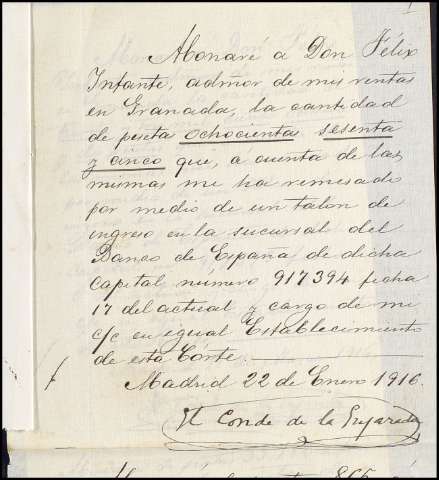 Abonaré á Don Félix
Infante, admor de mis rentas
en Granada, la cantidad
de peseta ochocientas sesenta
y cinco que, a cuenta de las
mismas me ha remesado
por medio de un talon de
ingreso en la sucursal del
Banco de España de dicha
Capital, número 917394 fecha
17 del actual y cargo de mi
c/c en igual Establecimiento
de esta Córte.
Madrid 22 de Enero 1916.
El Conde de la